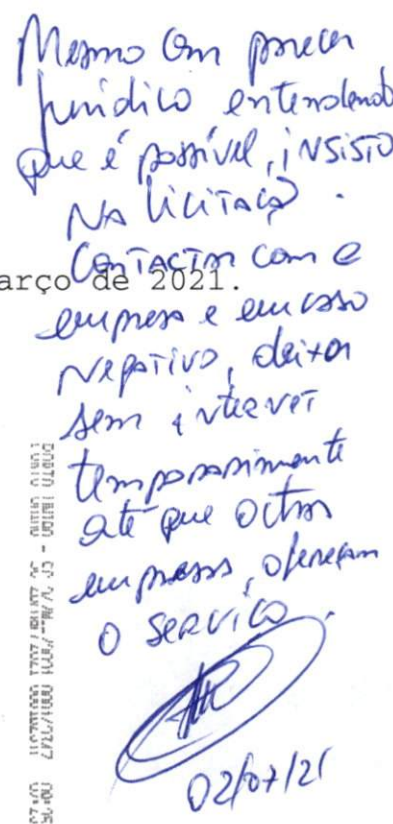 Mesmo com parecer
jurídico entendendo
que é possível, insisto
na licitação.
Contactar com e
arço de 2021.
empresa e em caso
negativo, deixar
sem internet
temporariamente
até que outras
empresas, ofereçam
o serviço.
02/07/21